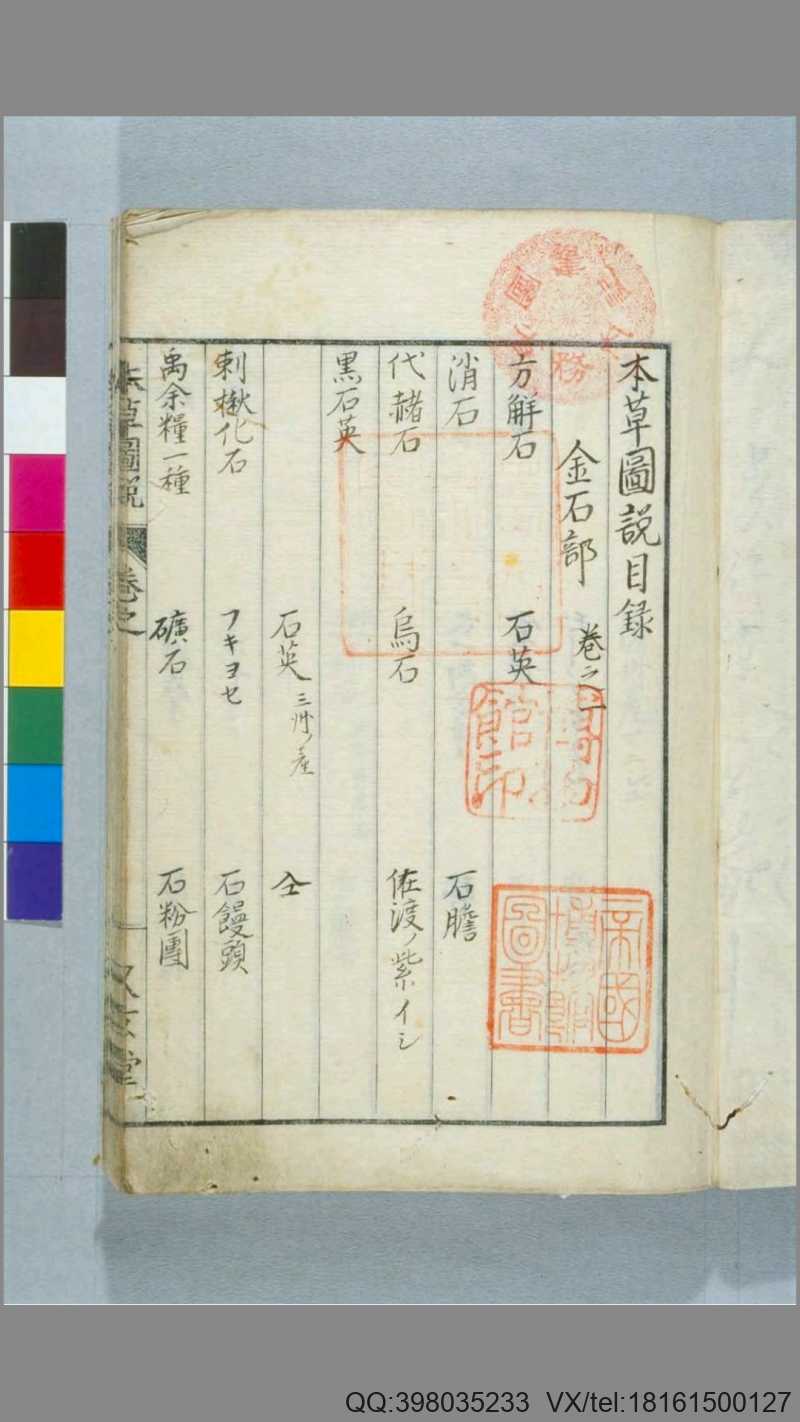 本草圖説目録
金石部 巻之一
方觧石 石英
消石 石膽
代赭石 烏石 佐渡ノ紫イシ
黒石英
石英 三州ノ産 仝
刺楸化石 フキヨセ 石饅頭
禹余糧一種 礦石 石粉團
本草圖説 巻之
帝國博物館圖書
QQ:398035233 VX/tel:18161500127